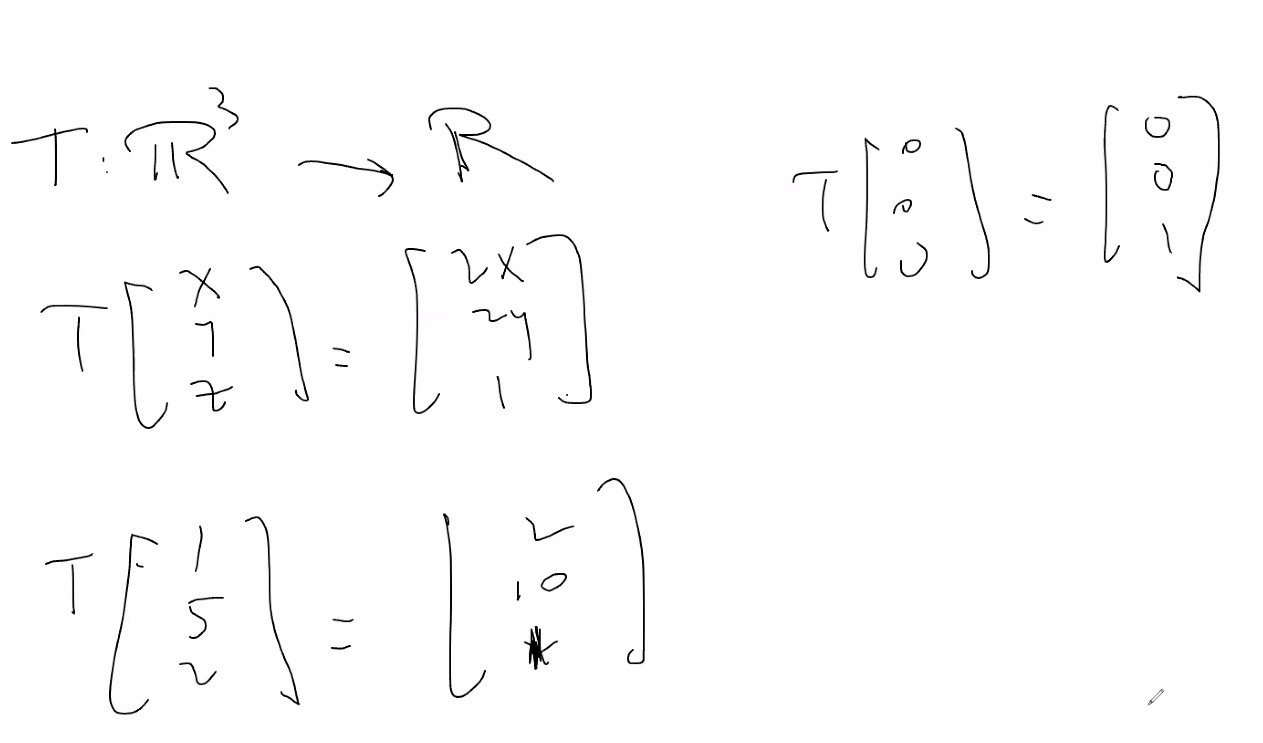 T: ℝ³ → ℝ
T [x y z] = [2x 2y 1]
T [1 5 2] = [2 10 ]
T [0 0 0] = [0 0 1]